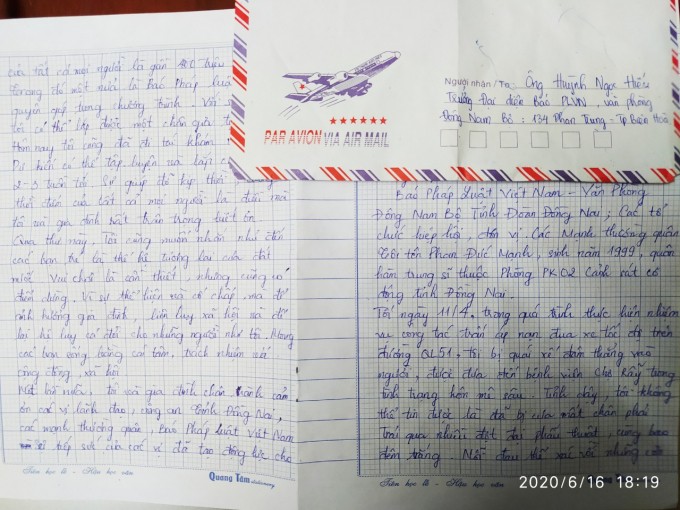 Người nhận/To: Ông Huỳnh Ngọc Hiếu
Trưởng Đại diện Báo PLVN, văn phòng
Đông Nam Bộ: 134 Phan Trung - Tp Biên Hoà
PAR AVION VIA AIR MAIL
của tất cả mọi người là gần 400 triệu
đồng chỉ một nửa là Báo Pháp luật
quyên góp từng chương trình. Với
tôi có thể lắp được một chân giả
Hôm nay tôi cũng đã đi tái khám
Dự kiến có thể tập luyện và
2-3 tuần tới. Sự giúp đỡ kịp thời
của tất cả mọi người là điều mà
tôi và gia đình trân trọng biết ơn
Qua thư này, Tôi cũng muốn nhắn nhủ đến
các bạn trẻ là thế hệ tương lai của đất
nước. Vui chơi là cần thiết, nhưng cũng có
điểm dừng. Vì sự thể hiện mà cố chấp, mà để
ảnh hưởng gia đình, liên luỵ xã hội mà để
lại hệ luỵ cả đời cho những người như tôi. Mong
các bạn sống bằng cái tâm, trách nhiệm với
cộng đồng, xã hội
Một lần nữa, tôi và gia đình chân thành cảm
ơn các vị lãnh đạo, công an tỉnh Đồng Nai,
các mạnh thường quân, Báo Pháp luật Việt Nam
tiếp sức của các vị đã tạo động lực cho
Tiên học lễ - Hậu học văn
Quang Tâm stationery
Báo Pháp Luật Việt Nam - Văn Phòng
Đông Nam Bộ Tỉnh Đoàn Đồng Nai; Các tổ
chức hiệp hội, đơn vị. Các Mạnh thường quân
Tôi tên Phan Đức Mạnh, sinh năm 1999, quân
hàm trung sĩ thuộc Phòng PK02 Cảnh sát cơ
động tỉnh Đồng Nai.
Tối ngày 11/4, trong quá trình thực hiện nhiệm
vụ công tác trấn áp nạn đua xe tốc độ trên
đường QL51. Tôi bị quái xế đâm thẳng vào
người, được đưa đến bệnh viện Chợ Rẫy trong
tình trạng hôn mê sâu. Tỉnh dậy, tôi không
thể tin được là đã bị cưa mất chân phải
Trải qua nhiều đợt đại phẫu thuật, cùng bao
đêm trắng. Nỗi đau thể xác với những
Tiên học lễ - Hậu học văn
2020/6/16 18:19